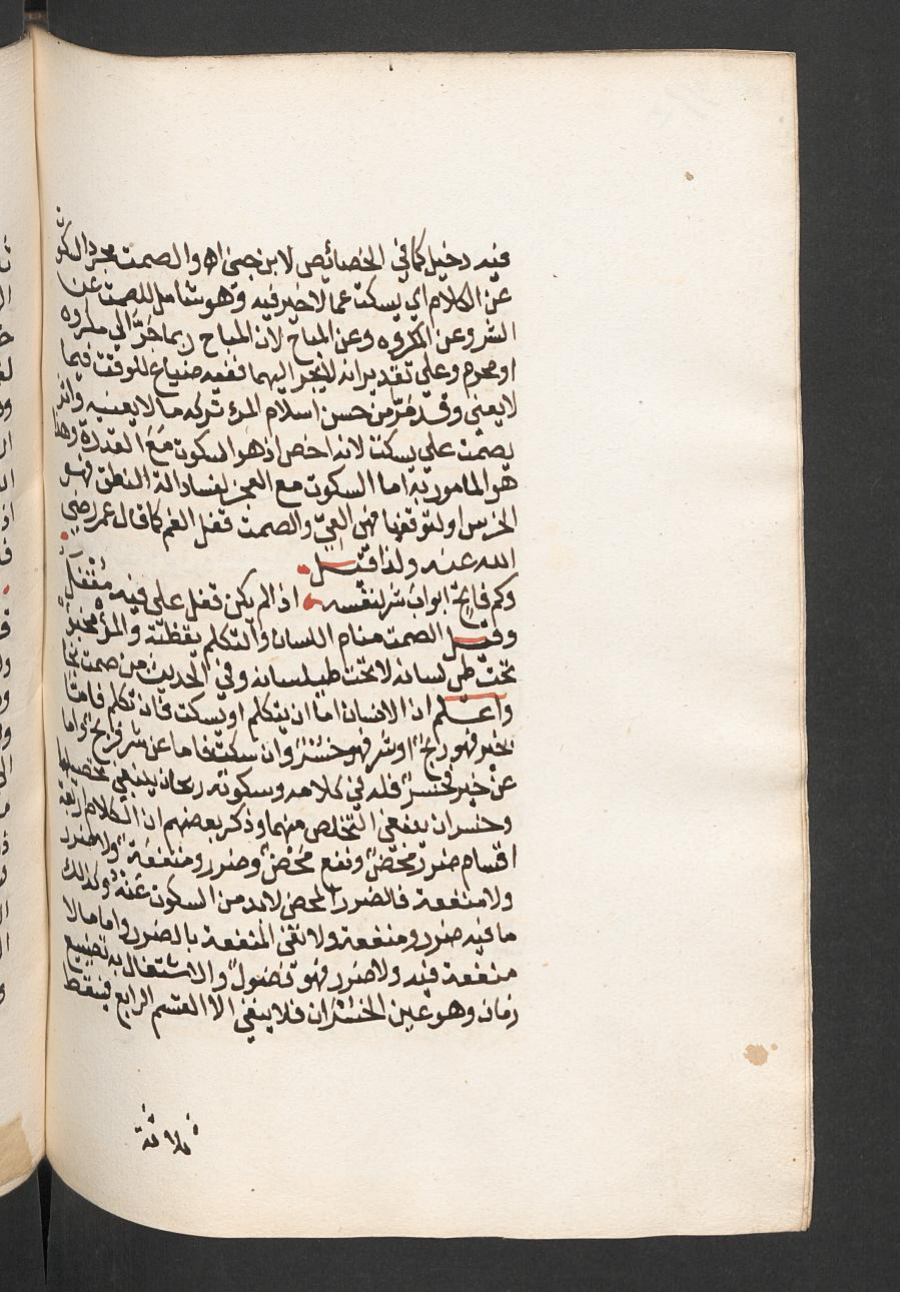 فيه دخيل كما في الخصائص لابن جني اه والصمت مجرد السكوت
عن الكلام اي يسكت عما لا خير فيه وهو شامل للصمت عن
الشر وعن المكروه وعن المباح لان المباح ربما جَرَّ الي مكروه
او محرم وعلي تقدير انه لا يجر اليهما ففيه ضياع للوقت فيما
لا يعني وقد مَرَّ من حسن اسلام المرء تركه ما لا يعنيه واثر
يصمت علي يسكت لانه اخص اذ هو السكوت مَعَ القدرة وهذا
هو المامور به اما السكوت مع العجز لفساد الة النطق فهو
الخرس او لتوقفها فهي العِيّ والصمت قفل الفم كما قال عمر رضي
الله عنه ولذا قيل
وكم فاتح ابواب شر لنفسه اذا لم يكن قفل علي فيه مُقْفَلُ
وقيل الصمت منام اللسان والتكلم يقظته والمرء مخبؤ
تحت طي لسانه لا تحت طيلسانه وفي الحديث من صمت نجا
واعلم ان الانسان اما ان يتكلم او يسكت فان تكلم فاما
بخير فهو ربح او شر فهو خسر وان سكت فاما عن شر فربح واما
عن خير فخسر فله في كلامه وسكوته ربحان ينبغي تحصيلهما
وخسران ينبغي التخلص منهما وذكر بعضهم ان الكلام اربعة
اقسام ضرر محض ونفع محض وضرر ومنفعة ولا ضرر
ولا منفعة فالضرر المحض لابد من السكوت عنه وكذلك
ما فيه ضرر ومنفعة ولا تفي المنفعة بالضرر واما ما لا
منفعة فيه ولا ضرر فهو فضول والاشتغال به تضييع
زمان وهو عين الخسران فلا يبقي الا القسم الرابع فسقط
ثلاثة